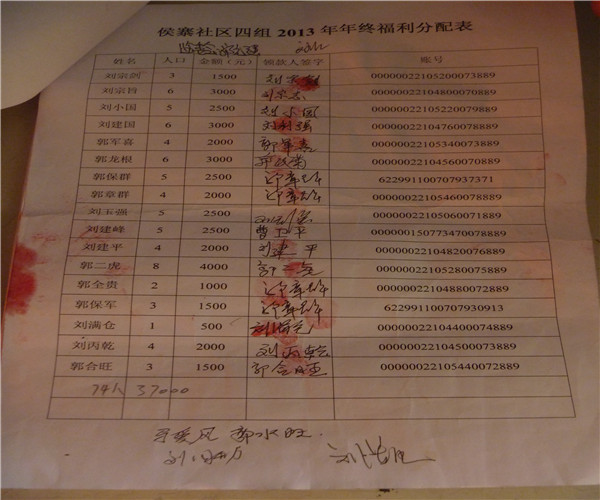 侯寨社区四组2013年年终福利分配表
姓名 人口 金额(元) 领款人签字 账号
刘宗剑 3 1500 00000022105200073889
刘宗旨 6 3000 00000022104800070889
刘小国 5 2500 刘小国 00000022105220079889
刘建国 6 3000 00000022104760078889
郭军喜 4 2000 郭军喜 00000022105340073889
郭龙根 6 3000 00000022104560070889
郭保群 5 2500 郭章群 622991100707937371
郭章群 4 2000 郭章群 00000022105460078889
刘玉强 5 2500 00000022105060071889
刘建峰 5 2500 曹卫平 00000015077347007889​8
刘建平 4 2000 刘建平 00000022104820076889
郭二虎 8 4000 郭二虎 00000022105280075889
郭全贵 2 1000 郭章群 00000022104880072889
郭保军 3 1500 郭章群 622991100707930913
刘满仓 1 500 00000022104400074889
刘丙乾 4 2000 刘丙乾 00000022104500073889
郭合旺 3 1500 郭合旺 00000022105440072889
74人 37000
郭水旺